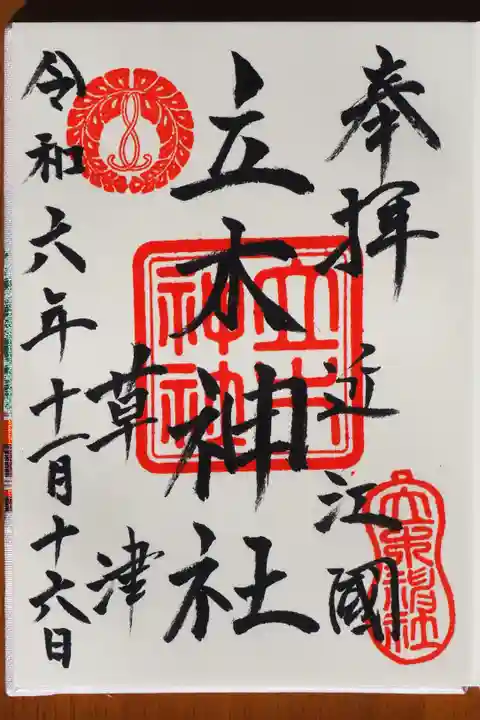 奉拝 近江國
立木神社
草津
令和六年十一月十六日
立木
神社